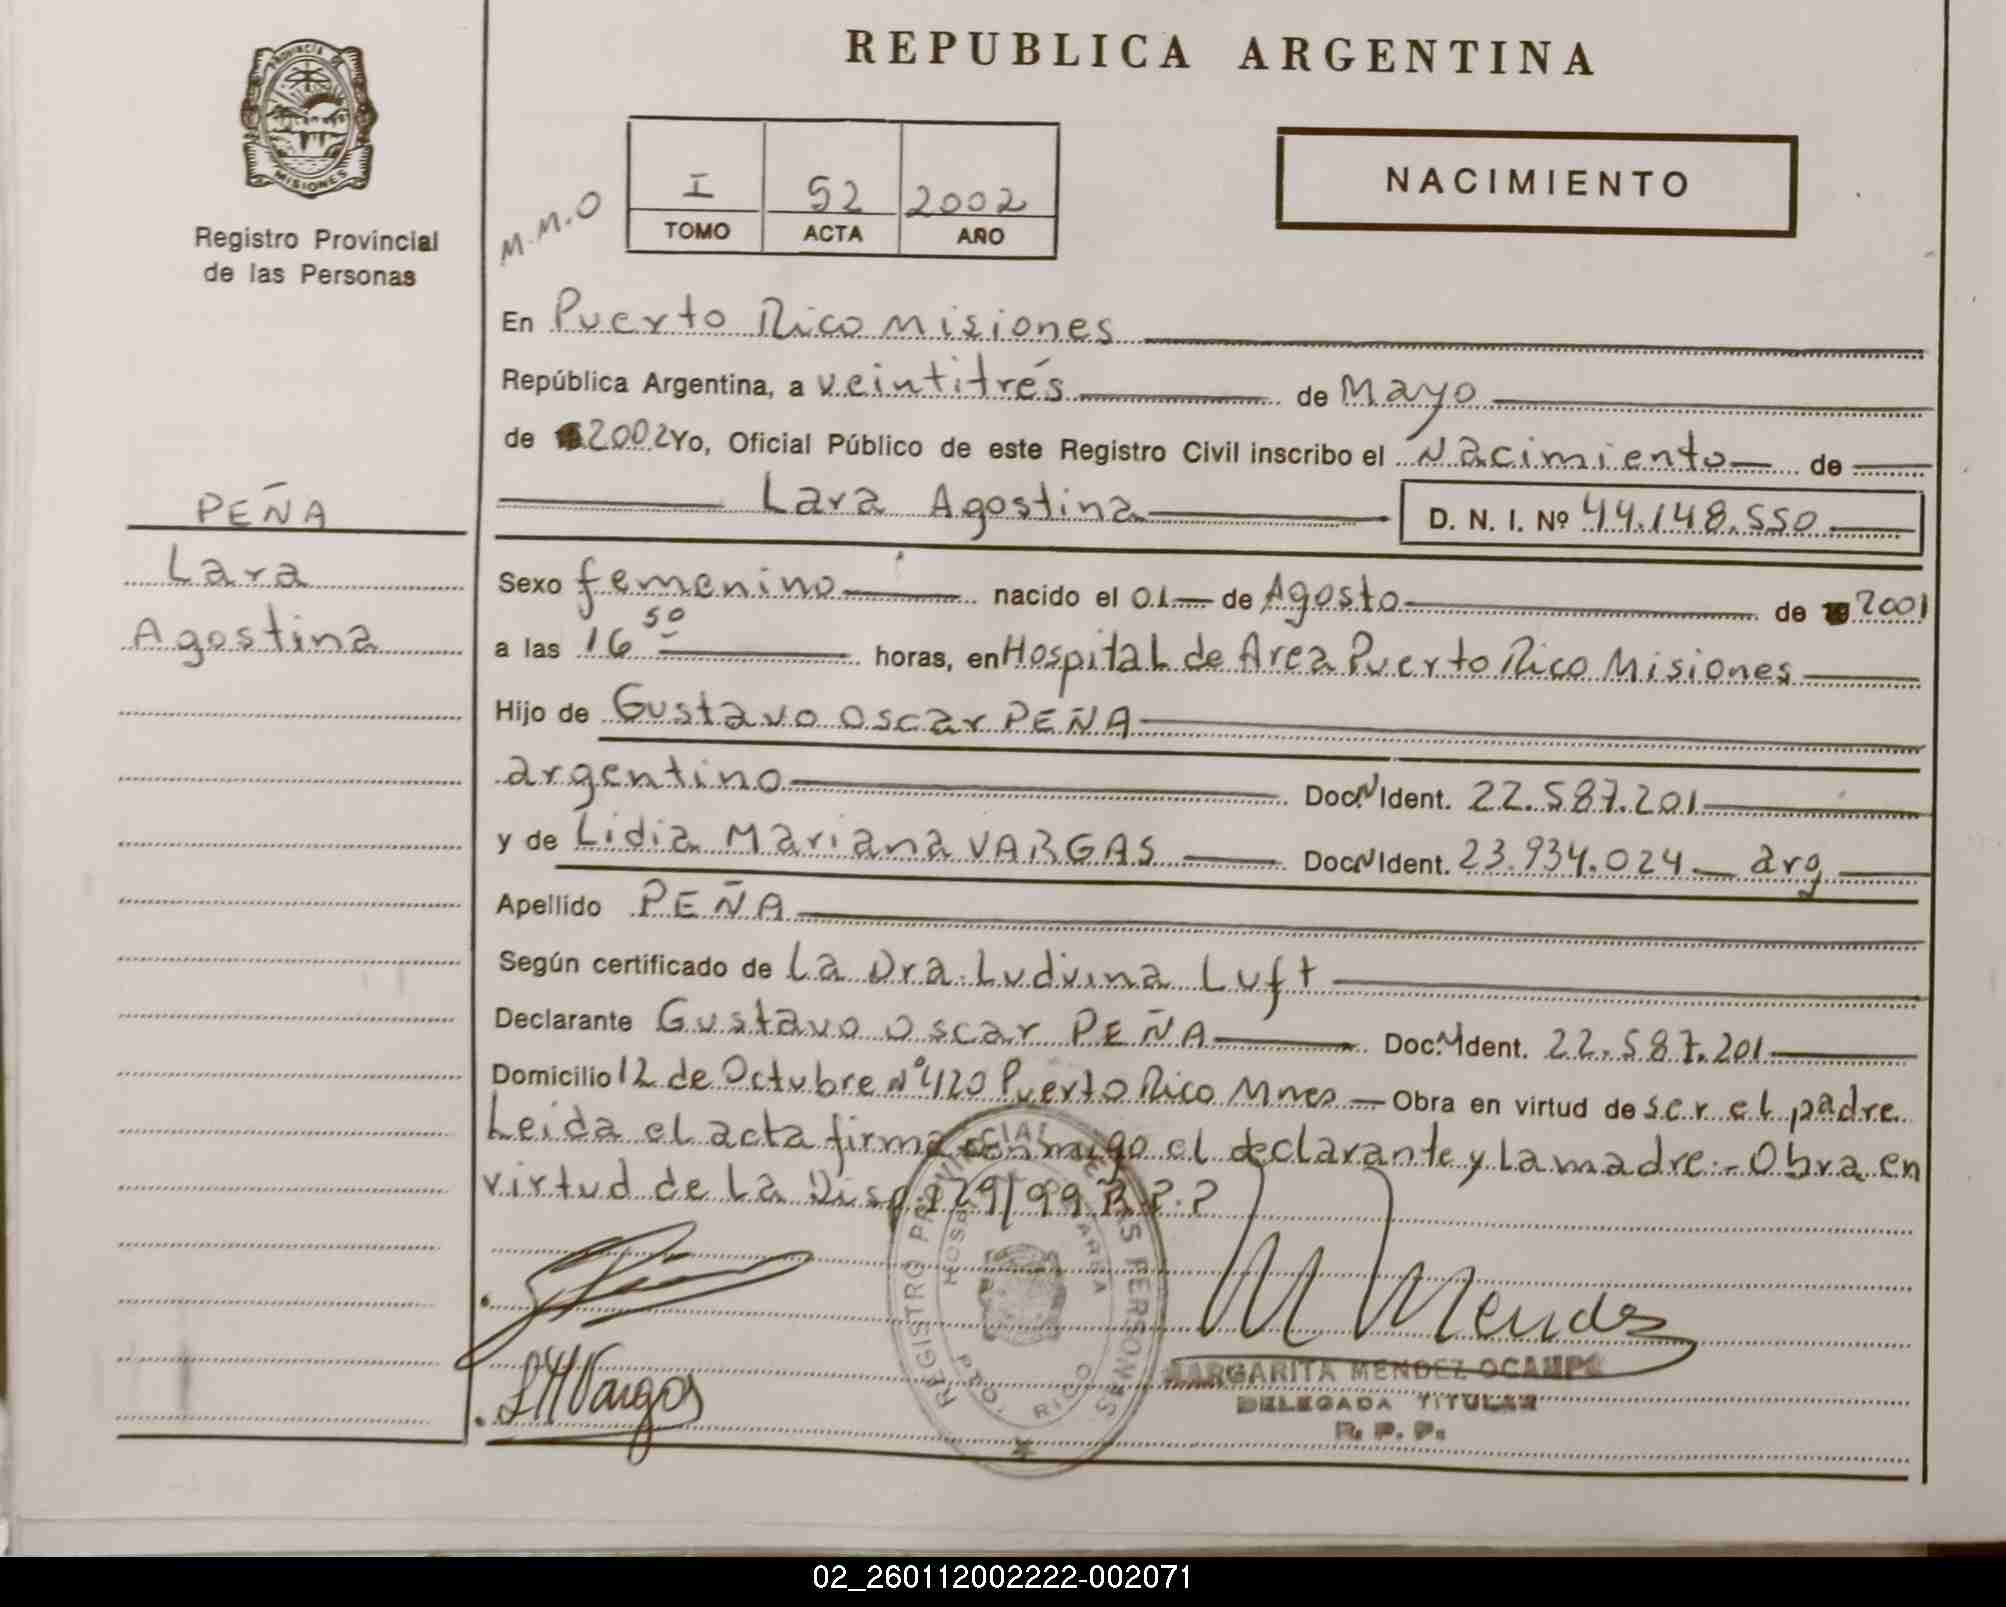 PROVINCIA DE
MISIONES
Registro Provincial
de las Personas
REPUBLICA ARGENTINA
NACIMIENTO
M.M.O
I 52 2002
TOMO ACTA AÑO
En Puerto Rico Misiones
República Argentina, a veintitrés de Mayo
de 2002 Yo, Oficial Público de este Registro Civil inscribo el Nacimiento de
Lara Agostina D. N. I. Nº 44.148.550
PEÑA
Lara
Agostina
Sexo femenino nacido el 01 de Agosto de 2001
a las 16 50 horas, en Hospital de Area Puerto Rico Misiones
Hijo de Gustavo Oscar PEÑA
argentino Doc. N Ident. 22.587.201
y de Lidia Mariana VARGAS Doc. N Ident. 23.934.024 arg
Apellido PEÑA
Según certificado de La Dra. Ludvina Luft
Declarante Gustavo Oscar PEÑA Doc. N Ident. 22.587.201
Domicilio 12 de Octubre Nº 420 Puerto Rico Mnes — Obra en virtud de ser el padre
Leida el acta firma conmigo el declarante y la madre.- Obra en
virtud de la Disp. 129/99 R.P.P
REGISTRO PROVINCIAL DE LAS PERSONAS
HOSPITAL AREA
PTO. RICO
M Mendez
MARGARITA MENDEZ OCAMPO
DELEGADA TITULAR
R. P. P.
LMVargas
02_260112002222-002071